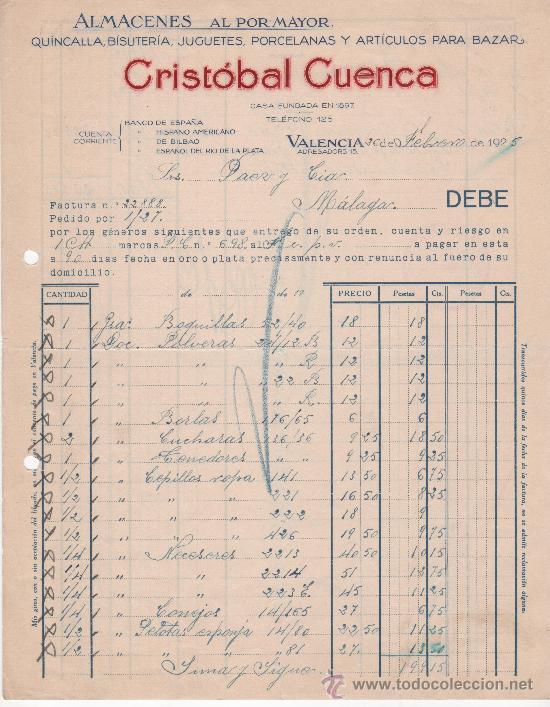 ALMACENES AL POR MAYOR.
QUINCALLA, BISUTERÍA, JUGUETES, PORCELANAS Y ARTÍCULOS PARA BAZAR
Cristóbal Cuenca
CASA FUNDADA EN 1897.
TELÉFONO 125
CUENTA CORRIENTE
BANCO DE ESPAÑA
" HISPANO AMERICANO
" DE BILBAO
" ESPAÑOL DEL RIO DE LA PLATA
VALENCIA de Febrero de 1925
ADRESADORS 15.
Srs. Paez y Cia
Málaga DEBE
Factura n.º 22888.
Pedido por 1/27.
por los géneros siguientes que entrego de su orden, cuenta y riesgo en
1 CH marcas P.C. n.º 698 al a pagar en esta
a 90 dias fecha en oro o plata precisamente y con renuncia al fuero de su
domicilio.
CANTIDAD de de 19 PRECIO Pesetas Cts. Pesetas Cts.
1 Gsa. Boquillas 52/40 18 18
1 Doc. Polveras 24/12 B 12 12
1 " " " R 12 12
1 " " " 22 B 12 12
1 " " " " R. 12 12
1 " Borlas 176/65 6 6
2 " Cucharas 136/36 9 25 18 50
1 " Tenedores " " 9 25 9 25
1/2 " Cepillos ropa 141 13 50 6 75
1/2 " " " 221 16 50 8 25
1/2 " " " 222 18 9
1/2 " " " 426 19 50 9 75
1/4 " Neceseres 2213 40 50 10 15
1/4 " " 2214 51 12 75
1/4 " " 223 C. 45 11 25
1/4 " Conejos 14/165 27 6 75
1/2 " Pelotas esponja 14/80 22 50 11 25
1/2 " " " 81 27 13 50
Suma y Sigue 199 15
Transcurridos quince dias de la fecha de la factura, no se admite reclamación alguna.
www.todocoleccion.net